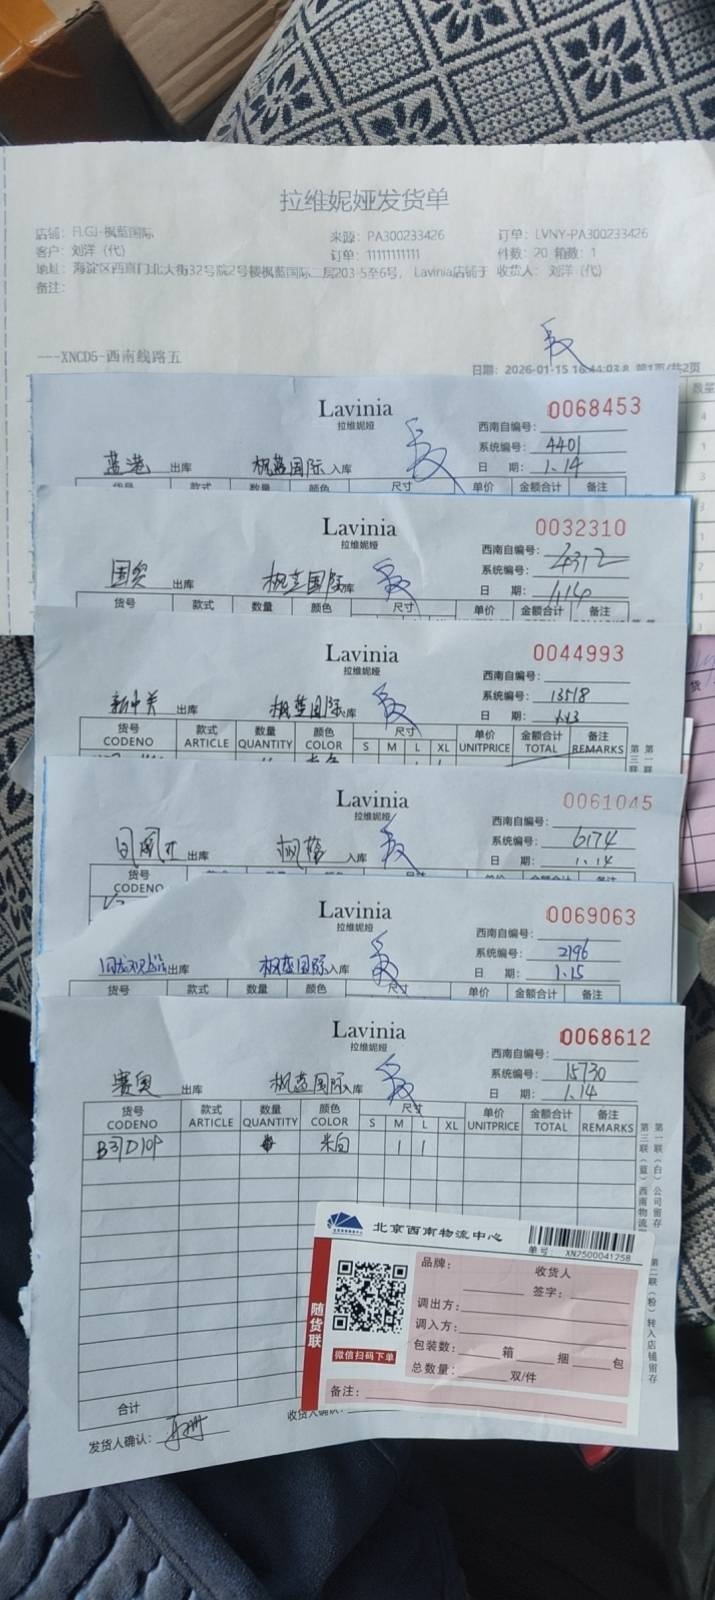 拉维妮娅发货单
店铺: FLGJ-枫蓝国际 来源: PA300233426 订单: LVNY-PA300233426
客户: 刘洋（代） 订单: 11111111111 件数: 20 箱数: 1
地址: 海淀区西直门北大街32号院2号楼枫蓝国际二层203-5至6号, Lavinia店铺于 收货人: 刘洋（代）
备注:
---XNCD5-西南线路五
日期: 2026-01-15 16:44:03.8 第1页/共2页
数量
Lavinia 0068453
拉维妮娅
西南自编号:
系统编号: 4401
蓝港 出库 枫蓝国际 入库 日 期: 1.14
货号 款式 数量 颜色 尺寸 单价 金额合计 备注
Lavinia 0032310
拉维妮娅
西南自编号:
系统编号: 4312
国贸 出库 枫蓝国际 入库 日 期: 1.14
货号 款式 数量 颜色 尺寸 单价 金额合计 备注
Lavinia 0044993
拉维妮娅
西南自编号:
系统编号: 13518
新中关 出库 枫蓝国际 入库 日 期:
货号 款式 数量 颜色 尺寸 单价 金额合计 备注
CODENO ARTICLE QUANTITY COLOR S M L XL UNITPRICE TOTAL REMARKS
Lavinia 0061045
拉维妮娅
西南自编号:
系统编号: 6174
出库 枫蓝 入库 日 期: 1.14
货号
CODENO
Lavinia 0069063
拉维妮娅
西南自编号:
系统编号: 2196
出库 枫蓝国际 入库 日 期: 1.15
货号 款式 数量 颜色 尺寸 单价 金额合计 备注
Lavinia 0068612
拉维妮娅
西南自编号:
系统编号: 15730
赛奥 出库 枫蓝国际 入库 日 期: 1.14
货号 款式 数量 颜色 尺寸 单价 金额合计 备注
CODENO ARTICLE QUANTITY COLOR S M L XL UNITPRICE TOTAL REMARKS
米白 1 1
合计
发货人确认: 收货人确认:
第一联（白）公司留存
第二联（粉）转入店铺留存
第三联（蓝）西南物流
北京西南物流中心
单号: XN2500041258
随货联
微信扫码下单
品牌: 收货人
签字:
调出方:
调入方:
包装数: 箱 捆 包
总数量: 双/件
备注: